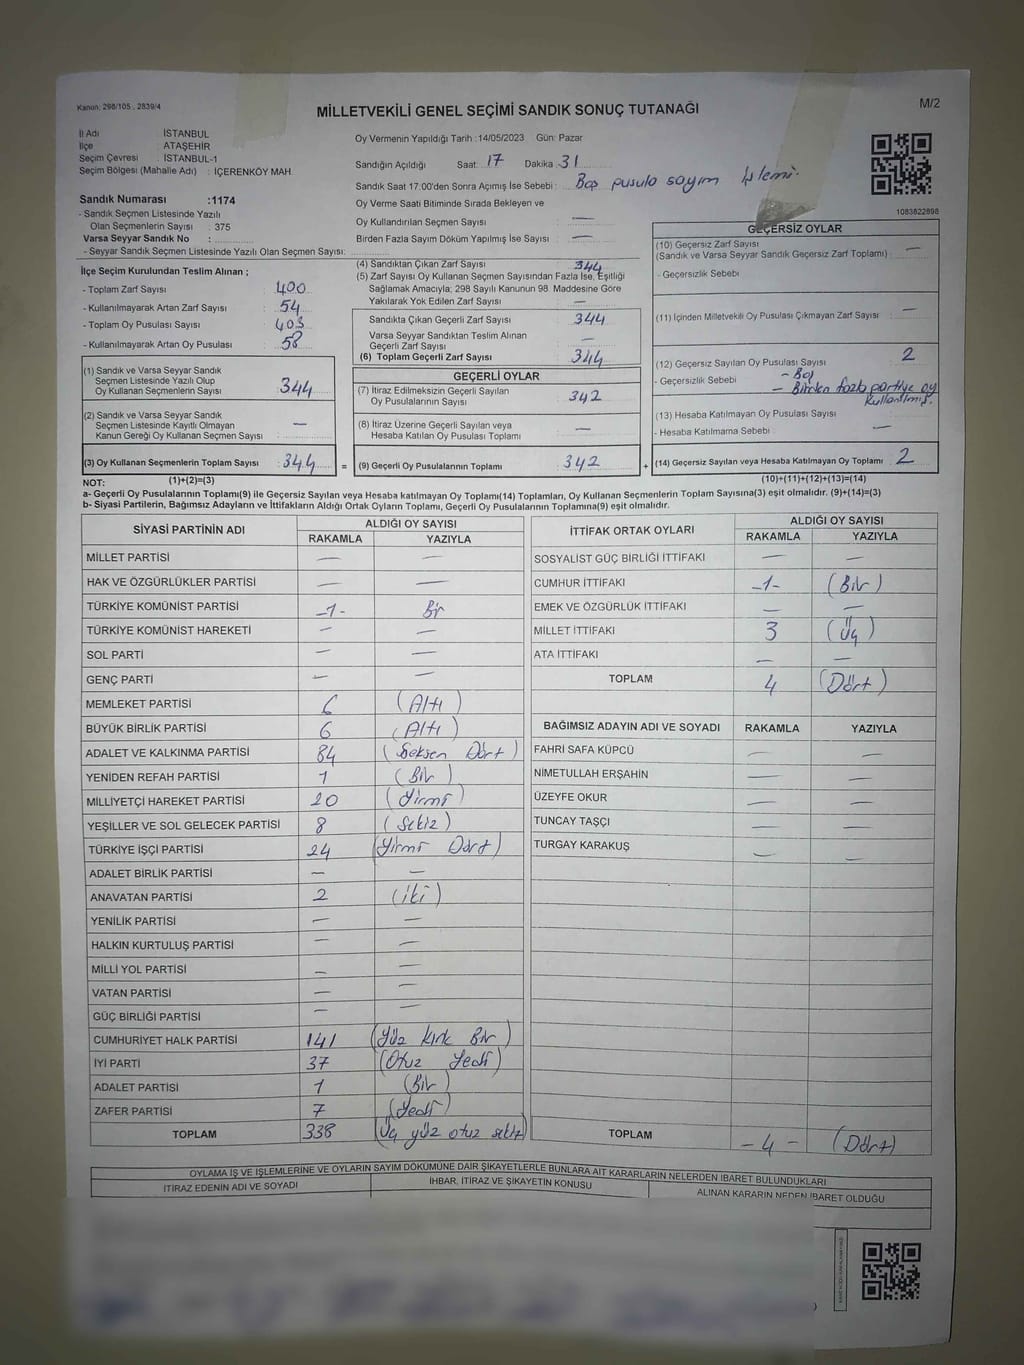 Kanun: 298/105 , 2839/4
MİLLETVEKİLİ GENEL SEÇİMİ SANDIK SONUÇ TUTANAĞI
M/2
İl Adı : İSTANBUL
İlçe : ATAŞEHİR
Seçim Çevresi : İSTANBUL-1
Seçim Bölgesi (Mahalle Adı) : İÇERENKÖY MAH.
Sandık Numarası :1174
- Sandık Seçmen Listesinde Yazılı
Olan Seçmenlerin Sayısı : 375
Varsa Seyyar Sandık No :
- Seyyar Sandık Seçmen Listesinde Yazılı Olan Seçmen Sayısı:
Oy Vermenin Yapıldığı Tarih :14/05/2023 Gün: Pazar
Sandığın Açıldığı Saat: 17 Dakika : 31
Sandık Saat 17:00'den Sonra Açımış İse Sebebi : Boş pusula sayım işlemi.
Oy Verme Saati Bitiminde Sırada Bekleyen ve
Oy Kullandırılan Seçmen Sayısı : —
Birden Fazla Sayım Döküm Yapılmış İse Sayısı : —
1083822898
İlçe Seçim Kurulundan Teslim Alınan ;
- Toplam Zarf Sayısı : 400
- Kullanılmayarak Artan Zarf Sayısı : 54
- Toplam Oy Pusulası Sayısı : 403
- Kullanılmayarak Artan Oy Pusulası : 58
(1) Sandık ve Varsa Seyyar Sandık
Seçmen Listesinde Yazılı Olup
Oy Kullanan Seçmenlerin Sayısı : 344
(2) Sandık ve Varsa Seyyar Sandık
Seçmen Listesinde Kayıtlı Olmayan
Kanun Gereği Oy Kullanan Seçmen Sayısı : —
(3) Oy Kullanan Seçmenlerin Toplam Sayısı : 344
(1)+(2)=(3)
(4) Sandıktan Çıkan Zarf Sayısı : 344
(5) Zarf Sayısı Oy Kullanan Seçmen Sayısından Fazla İse, Eşitliği
Sağlamak Amacıyla; 298 Sayılı Kanunun 98. Maddesine Göre
Yakılarak Yok Edilen Zarf Sayısı : —
Sandıkta Çıkan Geçerli Zarf Sayısı : 344
Varsa Seyyar Sandıktan Teslim Alınan
Geçerli Zarf Sayısı : —
(6) Toplam Geçerli Zarf Sayısı : 344
GEÇERLİ OYLAR
(7) İtiraz Edilmeksizin Geçerli Sayılan
Oy Pusulalarının Sayısı : 342
(8) İtiraz Üzerine Geçerli Sayılan veya
Hesaba Katılan Oy Pusulası Toplamı : —
= (9) Geçerli Oy Pusulalarının Toplamı : 342
GEÇERSİZ OYLAR
(10) Geçersiz Zarf Sayısı
(Sandık ve Varsa Seyyar Sandık Geçersiz Zarf Toplamı) : —
- Geçersizlik Sebebi
(11) İçinden Milletvekili Oy Pusulası Çıkmayan Zarf Sayısı : —
(12) Geçersiz Sayılan Oy Pusulası Sayısı : 2
- Geçersizlik Sebebi : - Boş
- Birden fazla partiye oy
kullanılmış.
(13) Hesaba Katılmayan Oy Pusulası Sayısı :
- Hesaba Katılmama Sebebi : —
+ (14) Geçersiz Sayılan veya Hesaba Katılmayan Oy Toplamı : 2
(10)+(11)+(12)+(13)=(14)
NOT:
a- Geçerli Oy Pusulalarının Toplamı(9) ile Geçersiz Sayılan veya Hesaba katılmayan Oy Toplamı(14) Toplamları, Oy Kullanan Seçmenlerin Toplam Sayısına(3) eşit olmalıdır. (9)+(14)=(3)
b- Siyasi Partilerin, Bağımsız Adayların ve İttifakların Aldığı Ortak Oyların Toplamı, Geçerli Oy Pusulalarının Toplamına(9) eşit olmalıdır.
SİYASİ PARTİNİN ADI ALDIĞI OY SAYISI
RAKAMLA YAZIYLA
MİLLET PARTİSİ — —
HAK VE ÖZGÜRLÜKLER PARTİSİ — —
TÜRKİYE KOMÜNİST PARTİSİ -1- Bir
TÜRKİYE KOMÜNİST HAREKETİ — —
SOL PARTİ — —
GENÇ PARTİ — —
MEMLEKET PARTİSİ 6 (Altı)
BÜYÜK BİRLİK PARTİSİ 6 (Altı)
ADALET VE KALKINMA PARTİSİ 84 (Seksen Dört)
YENİDEN REFAH PARTİSİ 1 (Bir)
MİLLİYETÇİ HAREKET PARTİSİ 20 (Yirmi)
YEŞİLLER VE SOL GELECEK PARTİSİ 8 (Sekiz)
TÜRKİYE İŞÇİ PARTİSİ 24 (Yirmi Dört)
ADALET BİRLİK PARTİSİ — —
ANAVATAN PARTİSİ 2 (İki)
YENİLİK PARTİSİ — —
HALKIN KURTULUŞ PARTİSİ — —
MİLLİ YOL PARTİSİ — —
VATAN PARTİSİ — —
GÜÇ BİRLİĞİ PARTİSİ — —
CUMHURİYET HALK PARTİSİ 141 (Yüz Kırk Bir)
İYİ PARTİ 37 (Otuz Yedi)
ADALET PARTİSİ 1 (Bir)
ZAFER PARTİSİ 7 (Yedi)
TOPLAM 338 (Üç yüz otuz sekiz)
İTTİFAK ORTAK OYLARI ALDIĞI OY SAYISI
RAKAMLA YAZIYLA
SOSYALİST GÜÇ BİRLİĞİ İTTİFAKI — —
CUMHUR İTTİFAKI -1- (Bir)
EMEK VE ÖZGÜRLÜK İTTİFAKI — —
MİLLET İTTİFAKI 3 (Üç)
ATA İTTİFAKI — —
TOPLAM 4 (Dört)
BAĞIMSIZ ADAYIN ADI VE SOYADI RAKAMLA YAZIYLA
FAHRİ SAFA KÜPCÜ — —
NİMETULLAH ERŞAHİN — —
ÜZEYFE OKUR — —
TUNCAY TAŞÇI — —
TURGAY KARAKUŞ — —
TOPLAM -4- (Dört)
OYLAMA İŞ VE İŞLEMLERİNE VE OYLARIN SAYIM DÖKÜMÜNE DAİR ŞİKAYETLERLE BUNLARA AİT KARARLARIN NELERDEN İBARET BULUNDUKLARI
İTİRAZ EDENİN ADI VE SOYADI İHBAR, İTİRAZ VE ŞİKAYETİN KONUSU ALINAN KARARIN NEDEN İBARET OLDUĞU